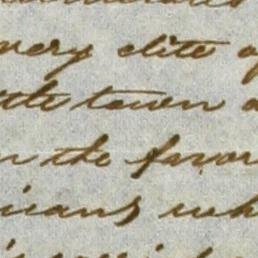 very elite of
ttle town
n the favor
icans wh